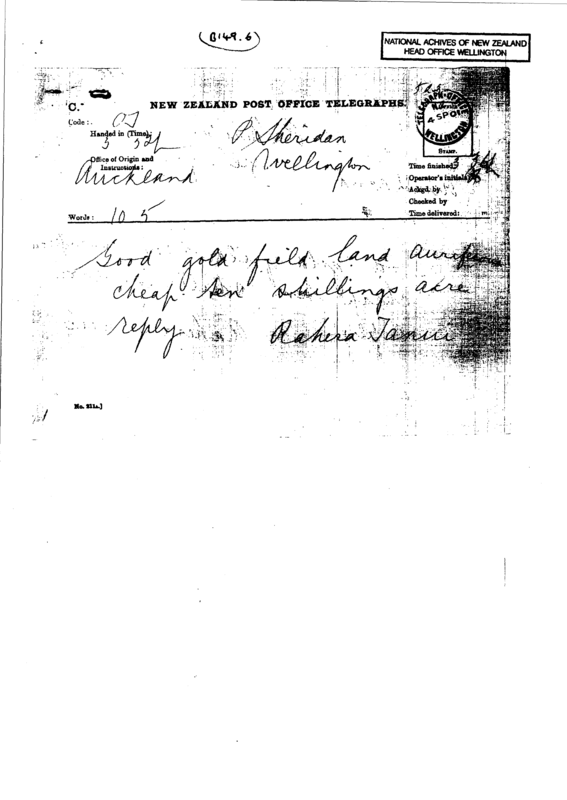 (B149.6)
NATIONAL ACHIVES OF NEW ZEALAND
HEAD OFFICE WELLINGTON
C.
NEW ZEALAND POST OFFICE TELEGRAPHS.
Code :
Handed in (Time):
P Sheridan
Office of Origin and
Instructions :
Wellington
Auckland
WELLINGTON
STAMP.
Time finished
Operator's initials
Ackgd. by
Checked by
Time delivered:
Words : 10 5
Good gold field land
cheap ten shillings acre
reply Rahera Tanui
No. 211a.]